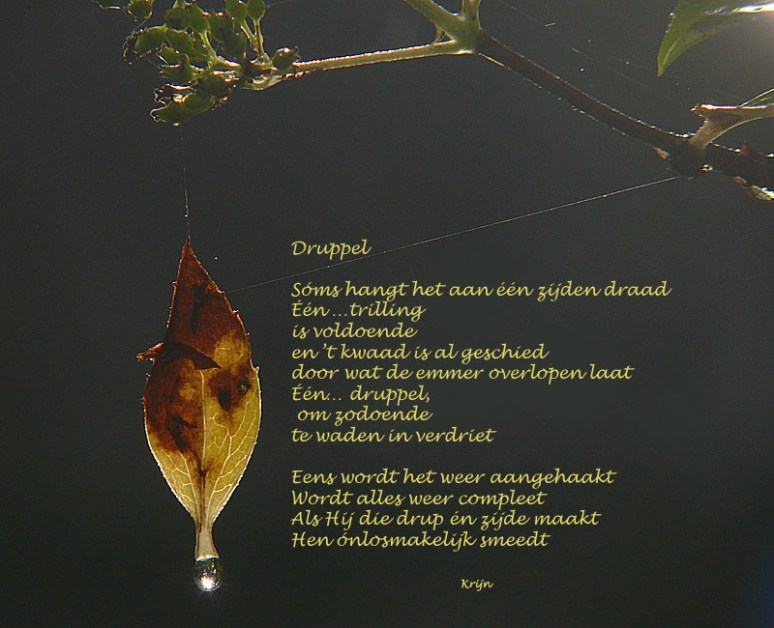 Druppel
Sóms hangt het aan één zijden draad
Één ...trilling
is voldoende
en 't kwaad is al geschied
door wat de emmer overlopen laat
Één... druppel,
om zodoende
te waden in verdriet
Eens wordt het weer aangehaakt
Wordt alles weer compleet
Als Hij die drup én zijde maakt
Hen ónlosmakelijk smeedt
Krijn